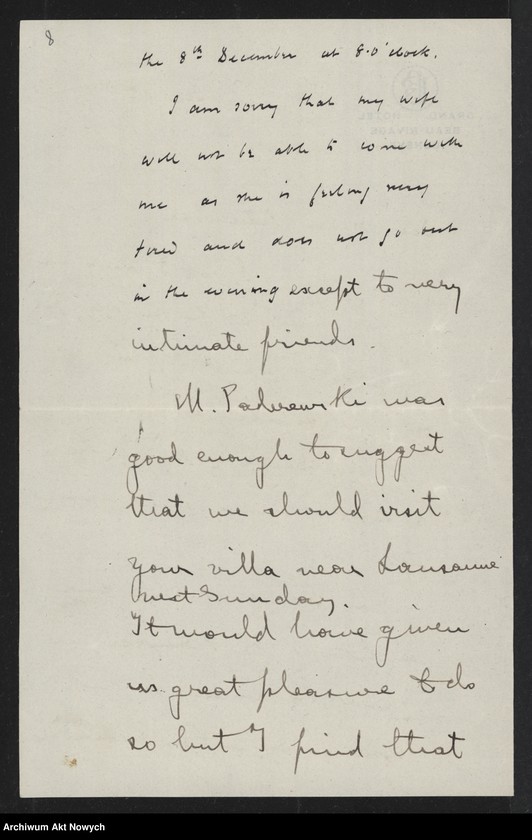 8
the 8th December at 8.o'clock.
I am sorry that my wife
will not be able to come with
me as she is feeling very
tired and does not go out
in the evening except to very
intimate friends.
M. Paderewski was
good enough to suggest
that we should visit
your villa near Lausanne
next Sunday.
It would have given
us great pleasure to do
so but I find that
Archiwum Akt Nowych